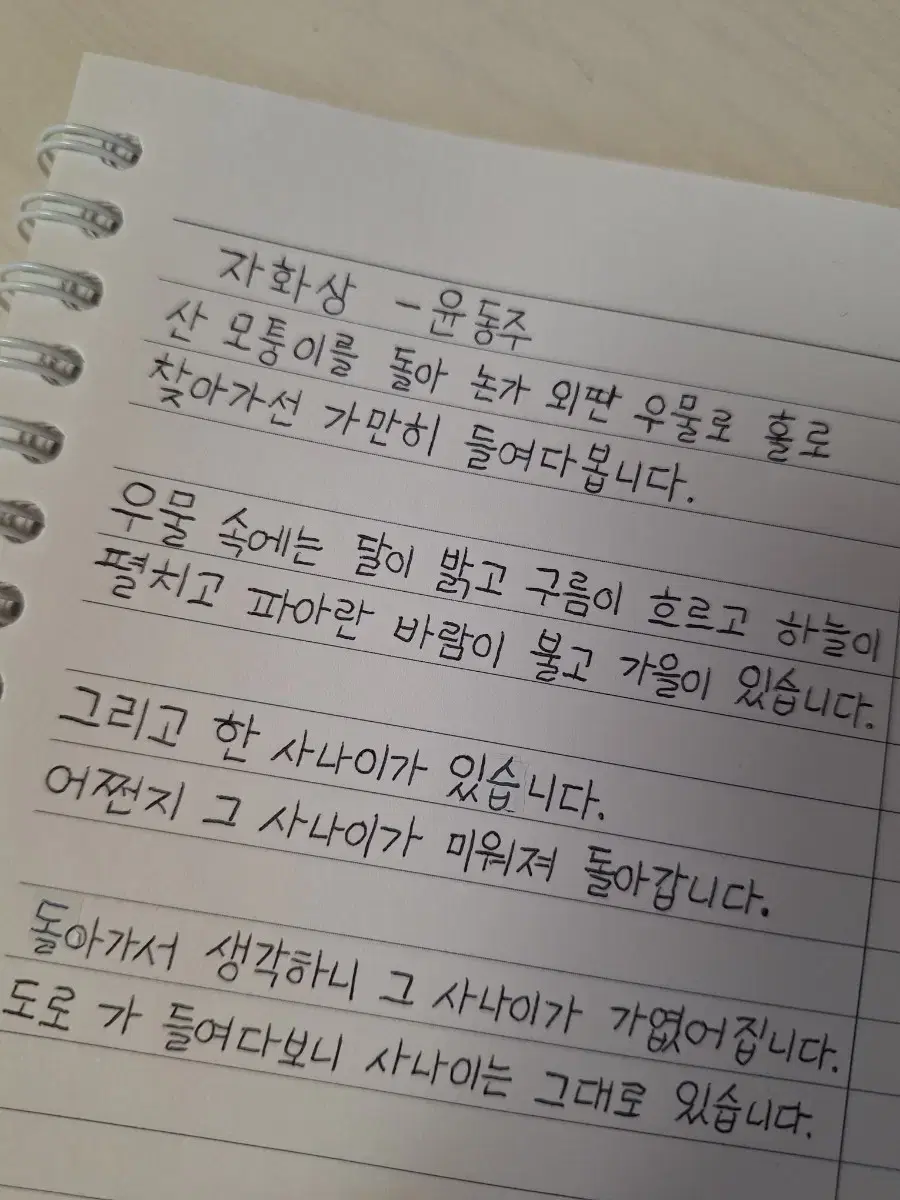 자화상 -윤동주
산 모퉁이를 돌아 논가 외딴 우물로 홀로
찾아가선 가만히 들여다봅니다.
우물 속에는 달이 밝고 구름이 흐르고 하늘이
펼치고 파아란 바람이 불고 가을이 있습니다.
그리고 한 사나이가 있습니다.
어쩐지 그 사나이가 미워져 돌아갑니다.
돌아가서 생각하니 그 사나이가 가엾어집니다.
도로 가 들여다보니 사나이는 그대로 있습니다.